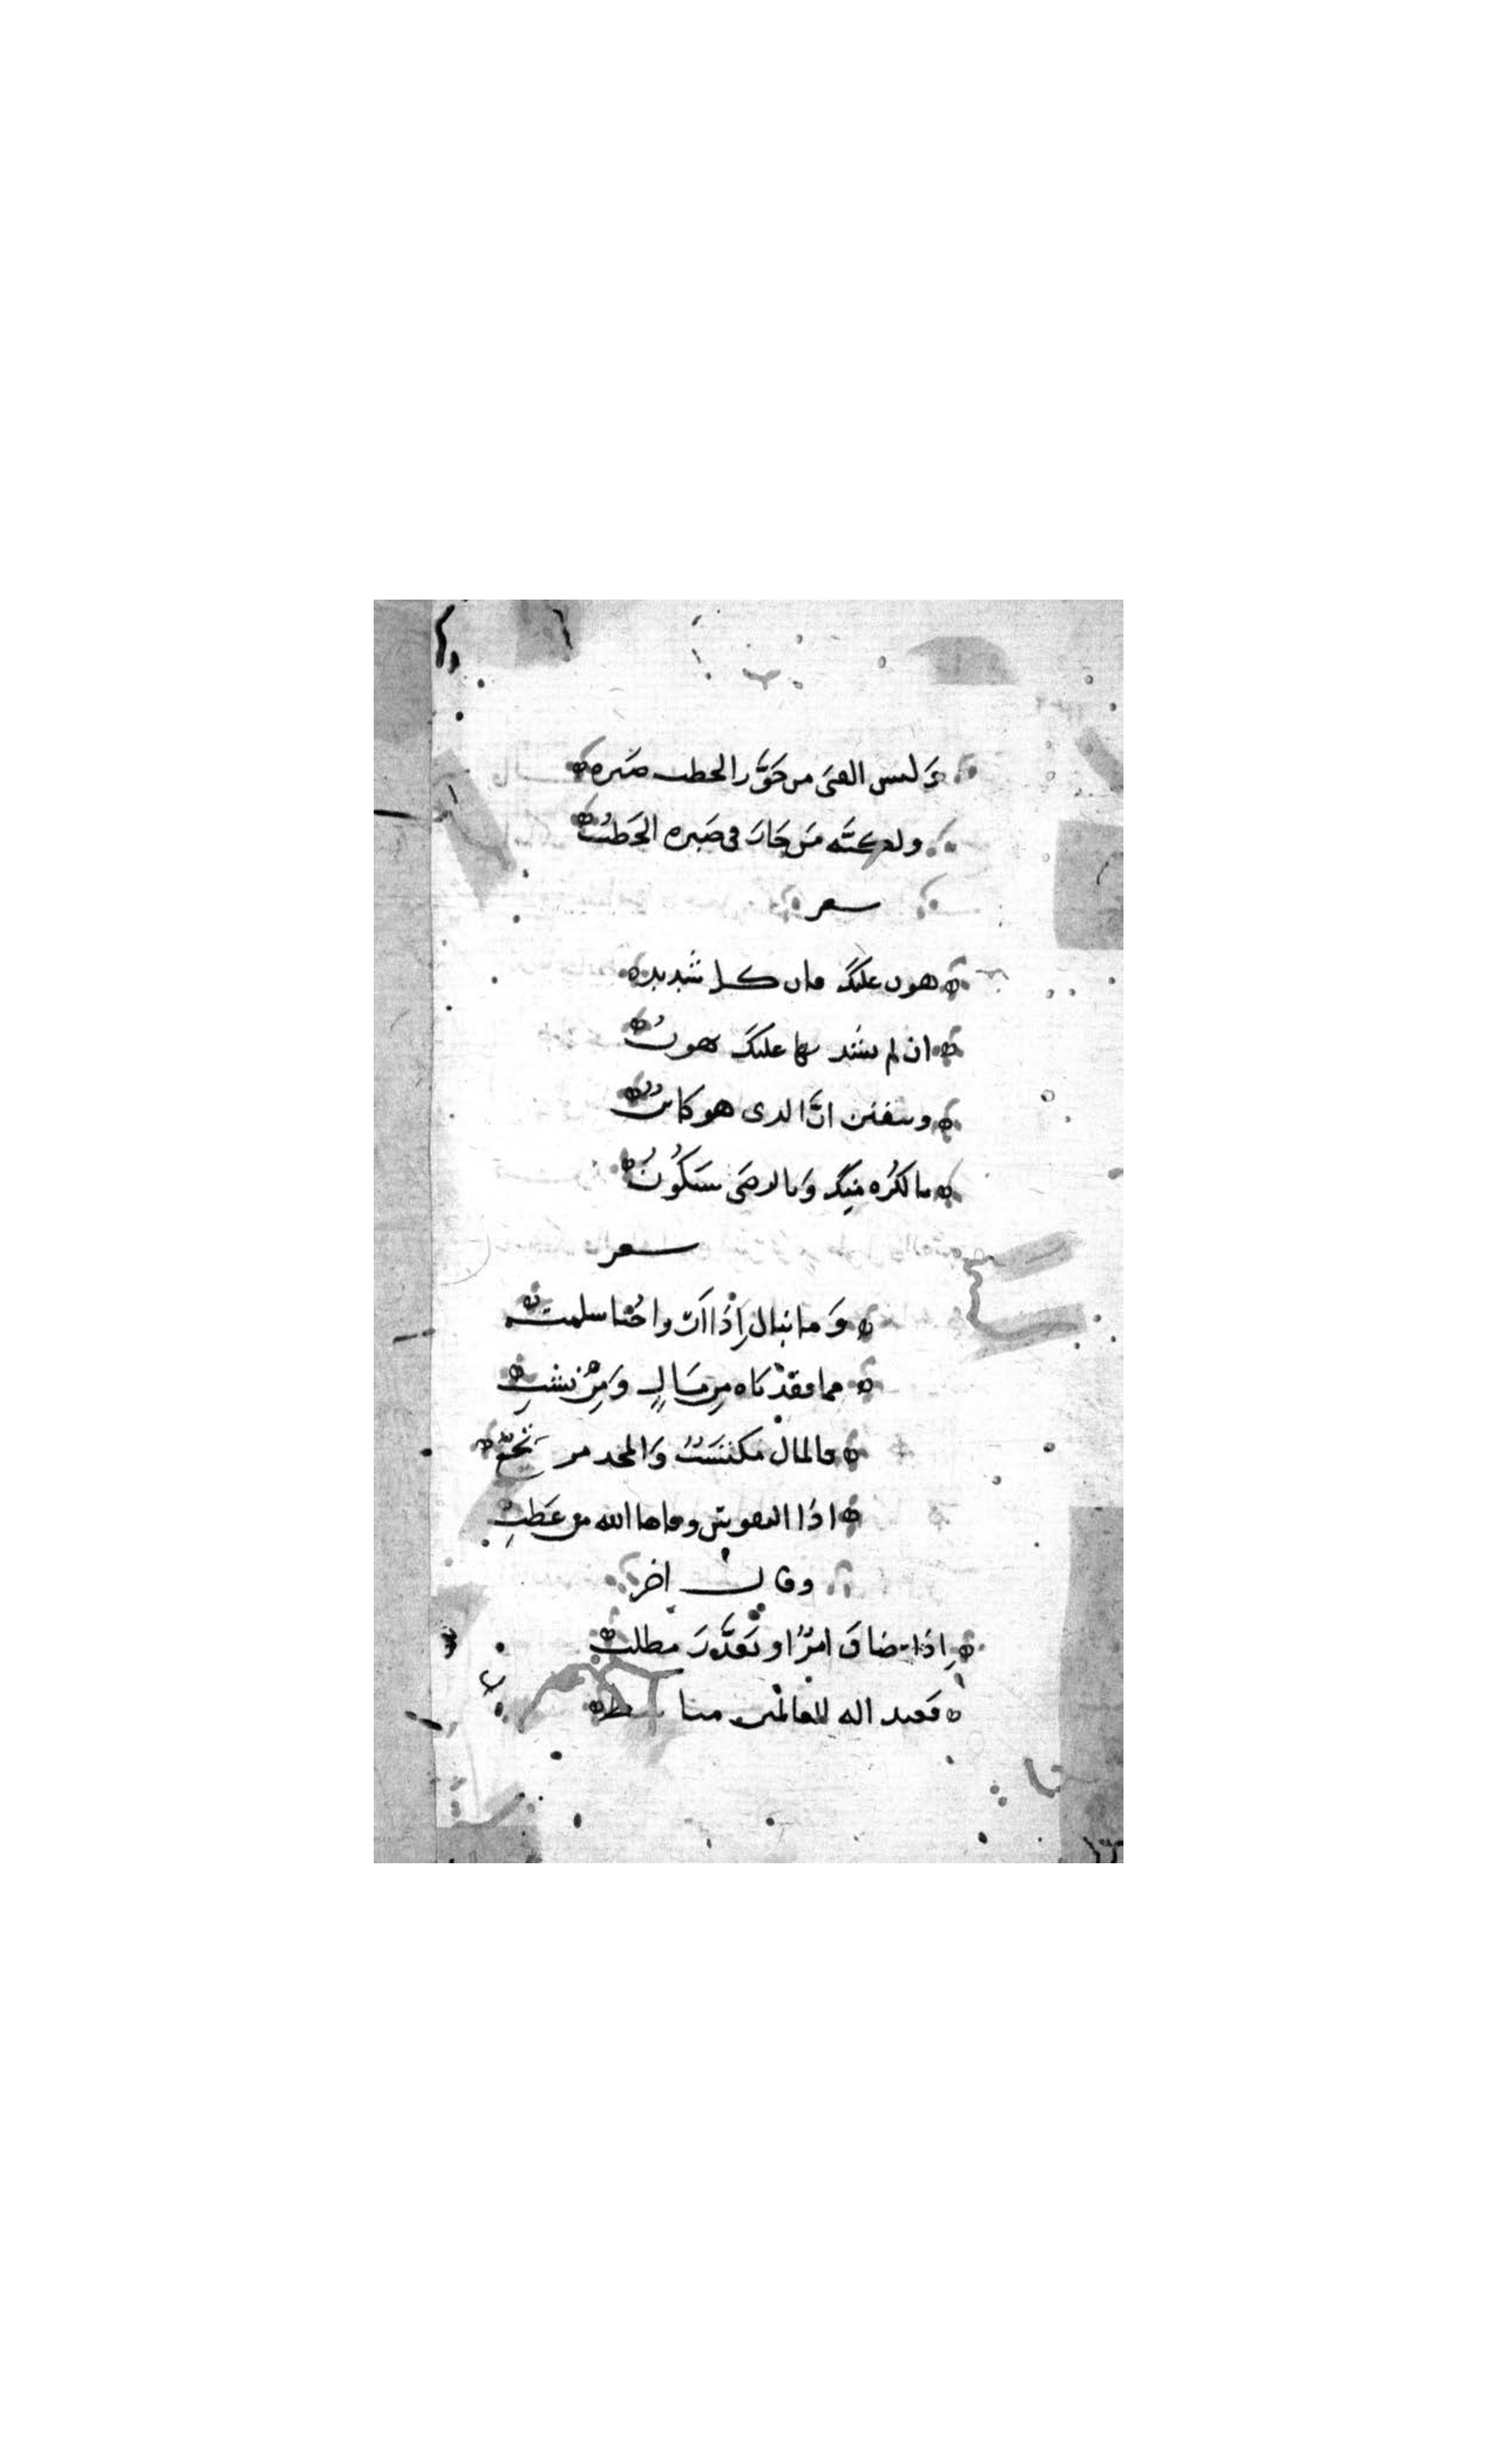 وَليس الفتى من حَوَّر الخطب صَبره
ولكنَّه مَن حَارَ في صَبره الخَطبُ
شعر
هون عليك فان كل شديده
ان لم تشدد بها عليك تهونُ
وتيقنن انَّ الذى هو كائنٌ
بالكُره منك وَبالرضى سَيَكُونُ
شعر
وَما نبال إِذَا ارواحُنا سلمت
مما فقدناه مِن مَالٍ وَمِن نشبِ
فالمال مكتسَبٌ وَالمجد
اذا النفوس وقاها الله من عَطَبِ
وقال اخر
إِذا ضاق امرٌ او تَعَذَّرَ مَطلب
فعبد اله العالمين